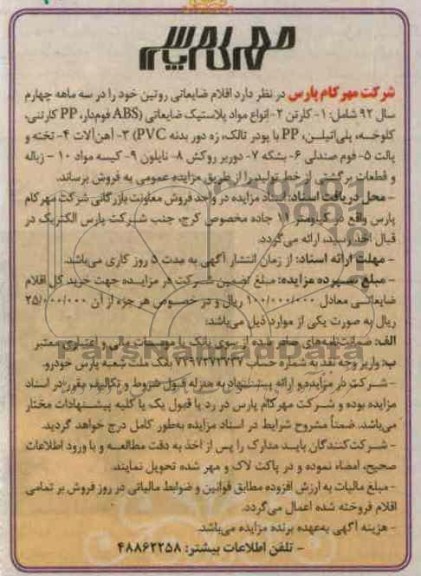 مهرکام پارس
شرکت مهرکام پارس در نظر دارد اقلام ضایعاتی روتین خود را در سه ماهه چهارم
سال ۹۲ شامل: ۱- کارتن ۲- انواع مواد پلاستیک ضایعاتی (ABS فومدار، PP کارتنی،
کلوخه، پلی‌اتیلن، PP با پودر تالک، زه دور بدنه PVC) ۳- آهن‌آلات ۴- تخته و
پالت ۵- فوم صندلی ۶- بشکه ۷- دوربر روکش ۸- نایلون ۹- کیسه مواد ۱۰ - زباله
و قطعات برگشتی از خط تولید را از طریق مزایده عمومی به فروش برساند.
- محل دریافت اسناد: اسناد مزایده در واحد فروش معاونت بازرگانی شرکت مهرکام
پارس واقع در کیلومتر جاده مخصوص کرج، جنب شرکت پارس الکتریک در
قبال اخذ رسید، ارائه می‌گردد.
- مهلت ارائه اسناد: از زمان انتشار آگهی به مدت ۵ روز کاری می‌باشد.
- مبلغ سپرده مزایده: مبلغ تضمین شرکت در مزایده جهت خرید کل اقلام
ضایعاتی معادل ۱۰۰/۰۰۰/۰۰۰ ریال و در خصوص هر جزء از آن ۲۵/۰۰۰/۰۰۰
ریال به صورت یکی از موارد ذیل می‌باشد:
الف: ضمانت‌نامه‌های صادر شده از سوی بانک یا موسسات مالی و اعتباری معتبر
ب: واریز وجه نقد به شماره حساب بانک ملت شعبه پارس خودرو.
- شرکت در مزایده و ارائه پیشنهاد به منزله قبول شروط و تکالیف مقرر در اسناد
مزایده بوده و شرکت مهرکام پارس در رد یا قبول یک یا کلیه پیشنهادات مختار
می‌باشد. ضمناً مشروح شرایط در اسناد مزایده به‌طور کامل درج خواهد گردید.
- شرکت‌کنندگان باید مدارک را پس از اخذ به دقت مطالعه و با ورود اطلاعات
صحیح، امضاء نموده و در پاکت لاک و مهر شده تحویل نمایند.
- مبلغ مالیات به ارزش افزوده مطابق قوانین و ضوابط مالیاتی در روز فروش بر تمامی
اقلام فروخته شده اعمال می‌گردد.
- هزینه آگهی به‌عهده برنده مزایده می‌باشد.
- تلفن اطلاعات بیشتر: ۴۸۸۶۲۲۵۸
ParsNamadData